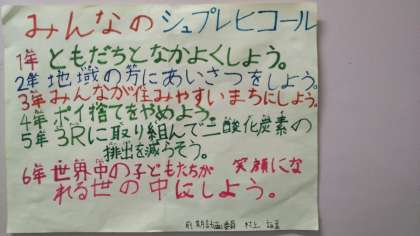 みんなの シュプレヒコール
1年 ともだちとなかよくしよう。
2年 地域の方にあいさつをしよう。
3年 みんなが住みやすいまちにしよう。
4年 ポイ捨てをやめよう。
5年 3Rに取り組んで二酸化炭素の
排出を減らそう。
6年 世界中の子どもたちが 笑顔にな
れる世の中にしよう。
前期計画委員 村上